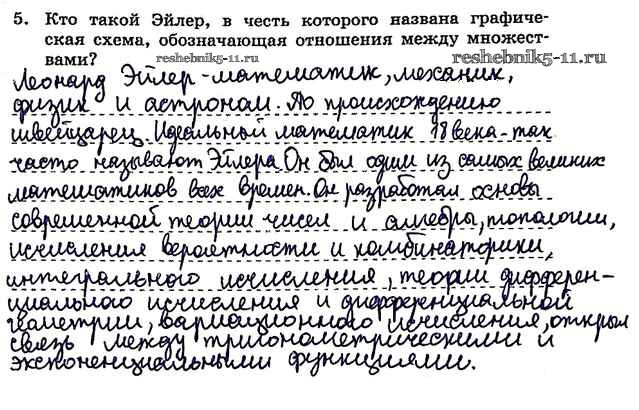 5. Кто такой Эйлер, в честь которого названа графиче-
ская схема, обозначающая отношения между множест-
вами?
reshebnik5-11.ru reshebnik5-11.ru
Леонард Эйлер-математик, механик,
физик и астроном. По происхождению
швейцарец. Идеальный математик 18 века-так
часто называют Эйлера. Он был один из самых великих
математиков всех времен. Он разработал основы
современной теории чисел и алгебры, топологии,
исчисления вероятности и комбинаторики,
интегрального исчисления, теории дифферен-
циального исчисления и дифференциальной
геометрии, вариационного исчисления, открыл
связь между тригонометрическими и
экспоненциальными функциями.